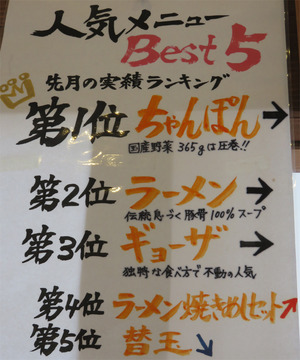 人気メニュー
Best 5
先月の実績ランキング
第1位 ちゃんぽん →
国産野菜 365gは圧巻!!
第2位 ラーメン →
伝統息づく豚骨100%スープ
第3位 ギョーザ →
独特な食べ方で不動の人気
第4位 ラーメン焼きめしセット ↗
第5位 替玉 ↘